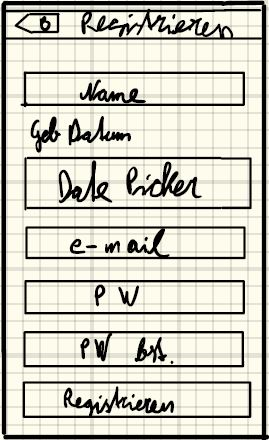 B Registrieren
Name
Geb Datum
Date Picker
e-mail
PW
PW Best.
Registrieren